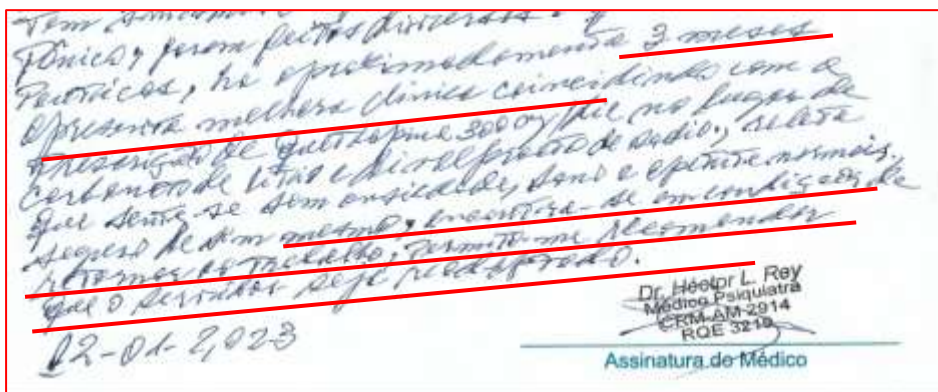 Tem
pânico, foram feitos diversos
há aproximadamente 3 meses
apresenta melhora clínica coincidindo com a
prescrição de Quetiapina 300 mg no lugar de
carbonato de lítio e divalproato de sódio, relata
que sente-se sem ansiedade, sono e apetite normais,
seguro de sim mesmo, encontra-se em condições de
retornar ao trabalho, permito-me recomendar
que o servidor seja readaptado.
12-01-2,023
Dr. Héctor L. Rey
Médico Psiquiatra
CRM-AM-2914
RQE 3219
Assinatura do Médico